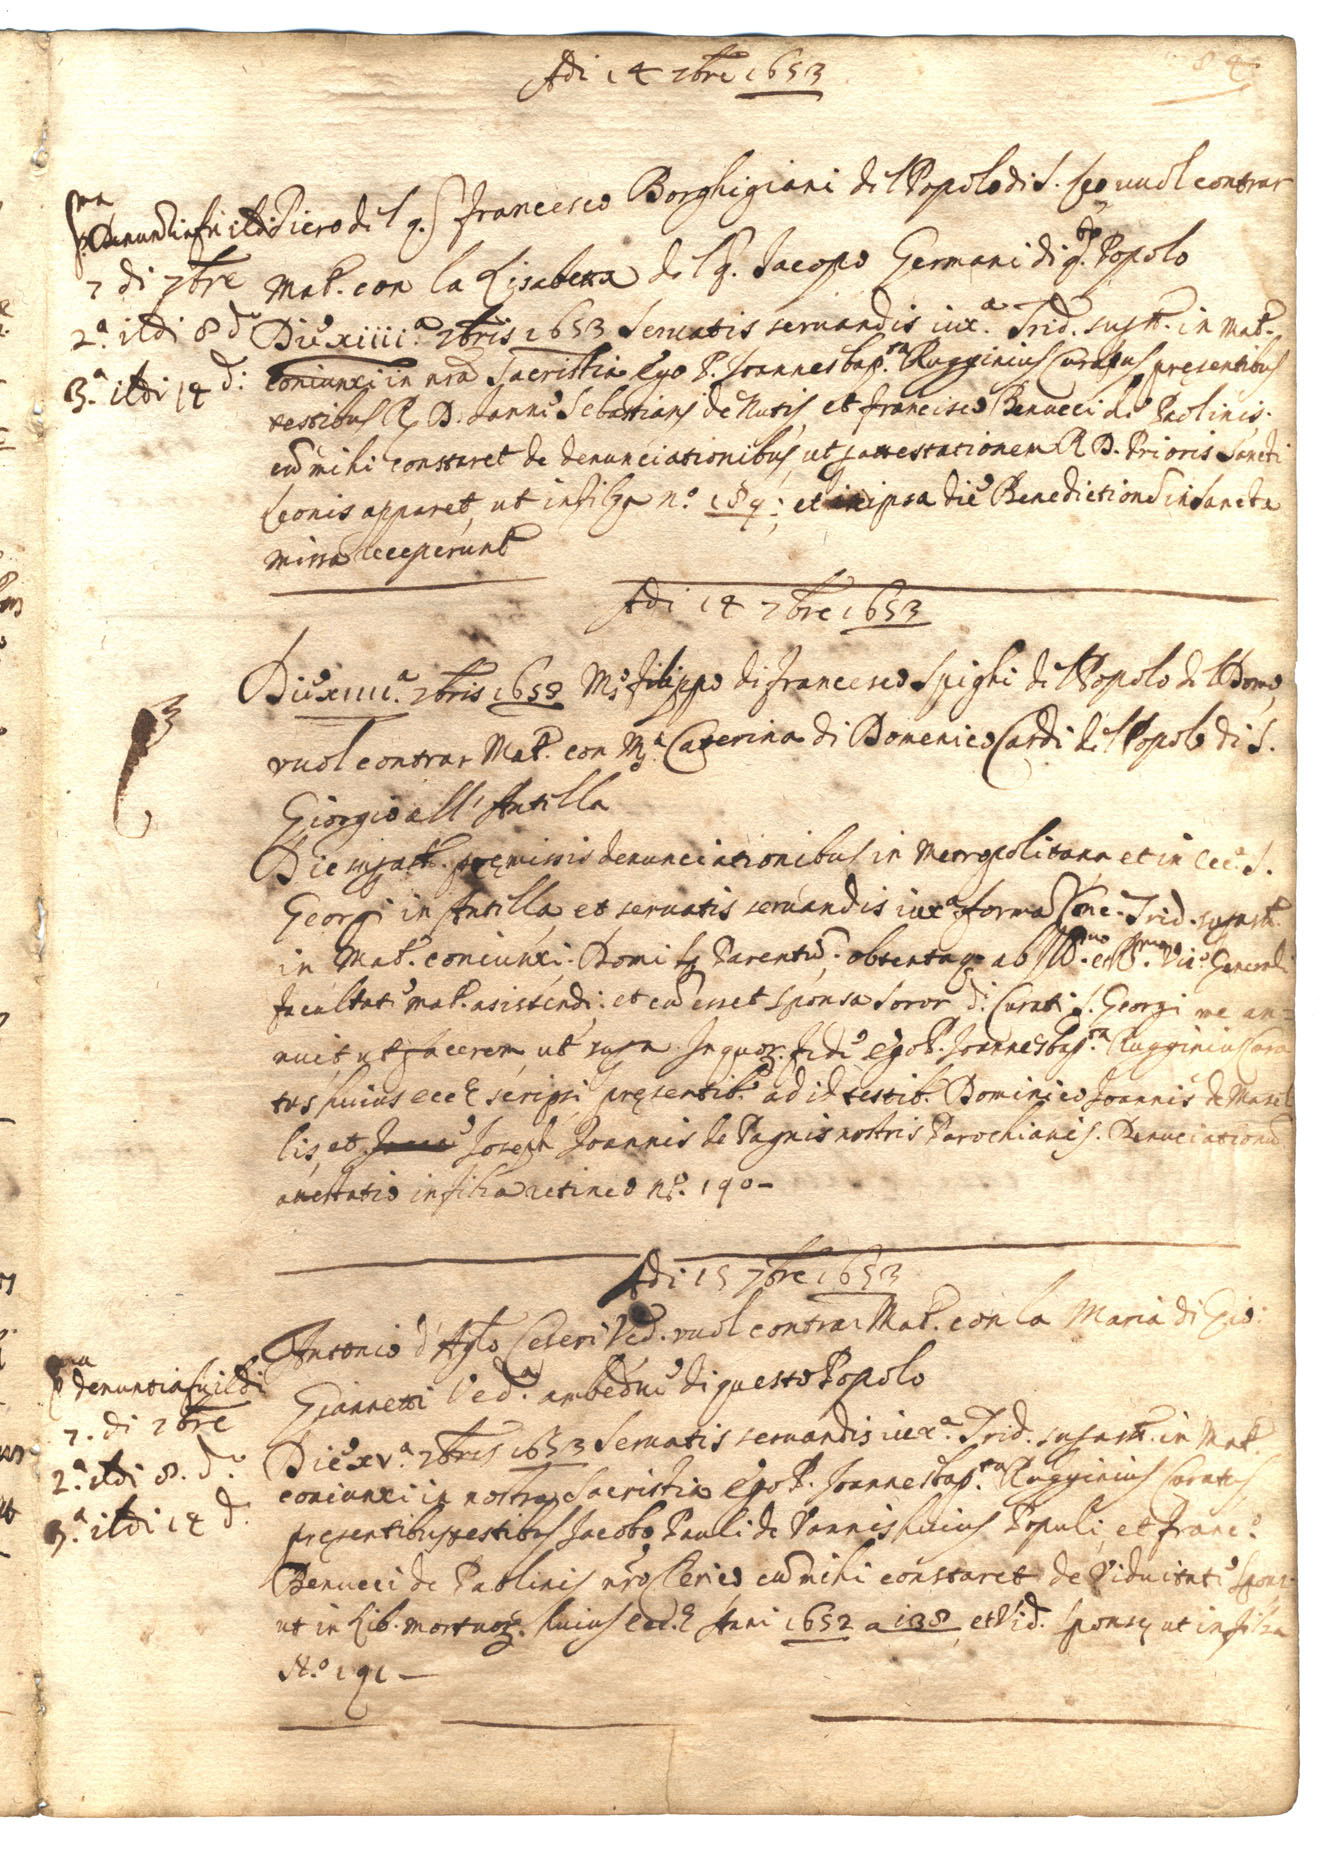 84
Adi 14 7bre 1653
p.ma Denuntia fu il di
7 di 7bre
2.a il di 8 d.o
3.a il di 14 d.
Piero del q. Francesco Borghigiani del Popolo di S. Leo vuol contrar
Mat. con la Lisabetta del q. Jacopo Germani di q.to Popolo
Die xiiii.a 7bris 1653 Servatis servandis iux.a Trid. in Mat.
coniunxi in nra Sacristia Ego P. Joannesbap.ta Rugginius Curatus presentibus
testibus R. D. Sebastiani de Nutis, et Francisco Benucci de Paolinis.
cu mihi constaret de denunciationibus, ut p attestationem R. D. Prioris Sancti
Leonis apparet, ut in filza n.o 189; et in ipsa die Benediction in Sancta
Missa acceperunt
Adi 14 7bre 1653
Die xiiii.a 7bris 1653 M.o Filippo di Francesco Spighi del Popolo del Domo
vuol contrar Mat. con M.a Caterina di Domenico Cardi del Popolo di S.
Giorgio all' Antilla
Die premissis denunciationibus in Metropolitana et in Ecc.a S.
Georgi in Antilla, et servatis servandis iux.a forma Conc. Trid.
in Mat. coniunxi. Domi Parentu, obtenta ab Ill.mo et R.mo Vic.o Generali
facultate mat. asistendi: et cu esset sponsa soror d. Curati S. Georgi me an=
nuit ut facerem ut supra. In quor. fide ego P. Joannesbap.ta Rugginius Cura
tus huius eccl.e scripsi presentib. ad id testib. Dominico Joannis de Masel
lis, et Joseph Joannis de Pagnis nostris Parochianis. Denuciationu
attestatio in filza retineo n.o 190 -
Adi 15 7bre 1653
p.ma denuntia fu il di
7. di 7bre
2.a il di 8. d.o
3.a il di 14 d.
Antonio d'Ag.lo Ceseri Ved. vuol contrar Mat. con la Maria di Gio:
Giannetti Ved.a ambedue di questo Popolo
Die xv.a 7bris 1653 Servatis servandis iux.a Trid. in Mat.
coniunxi in nostra Sacristia Ego P. Joannesbap.ta Rugginius Curatus
presentibus testibus Jacobo Pauli de Vannis huius Populi, et Franc.o
Benucci de Paolinis nro Clerico cu mihi constaret de Viduitate sponsi
ut in Lib. mortuor. huius eccl.e Anni 1652 a 138, et Vid. sponse ut in filza
N.o 191 -